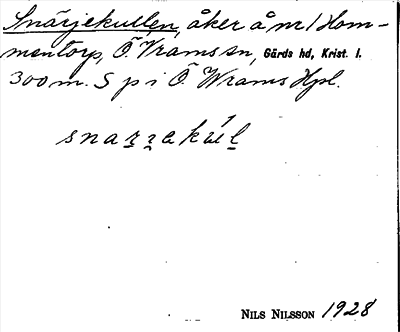 Snärjekullen, åker å nr 1 Hom-
mentorp, Ö. Vrams sn, Gärds hd, Krist. l.
300 m. S p i Ö. Wrams Hpl.
snarʒakul
NILS NILSSON 1928